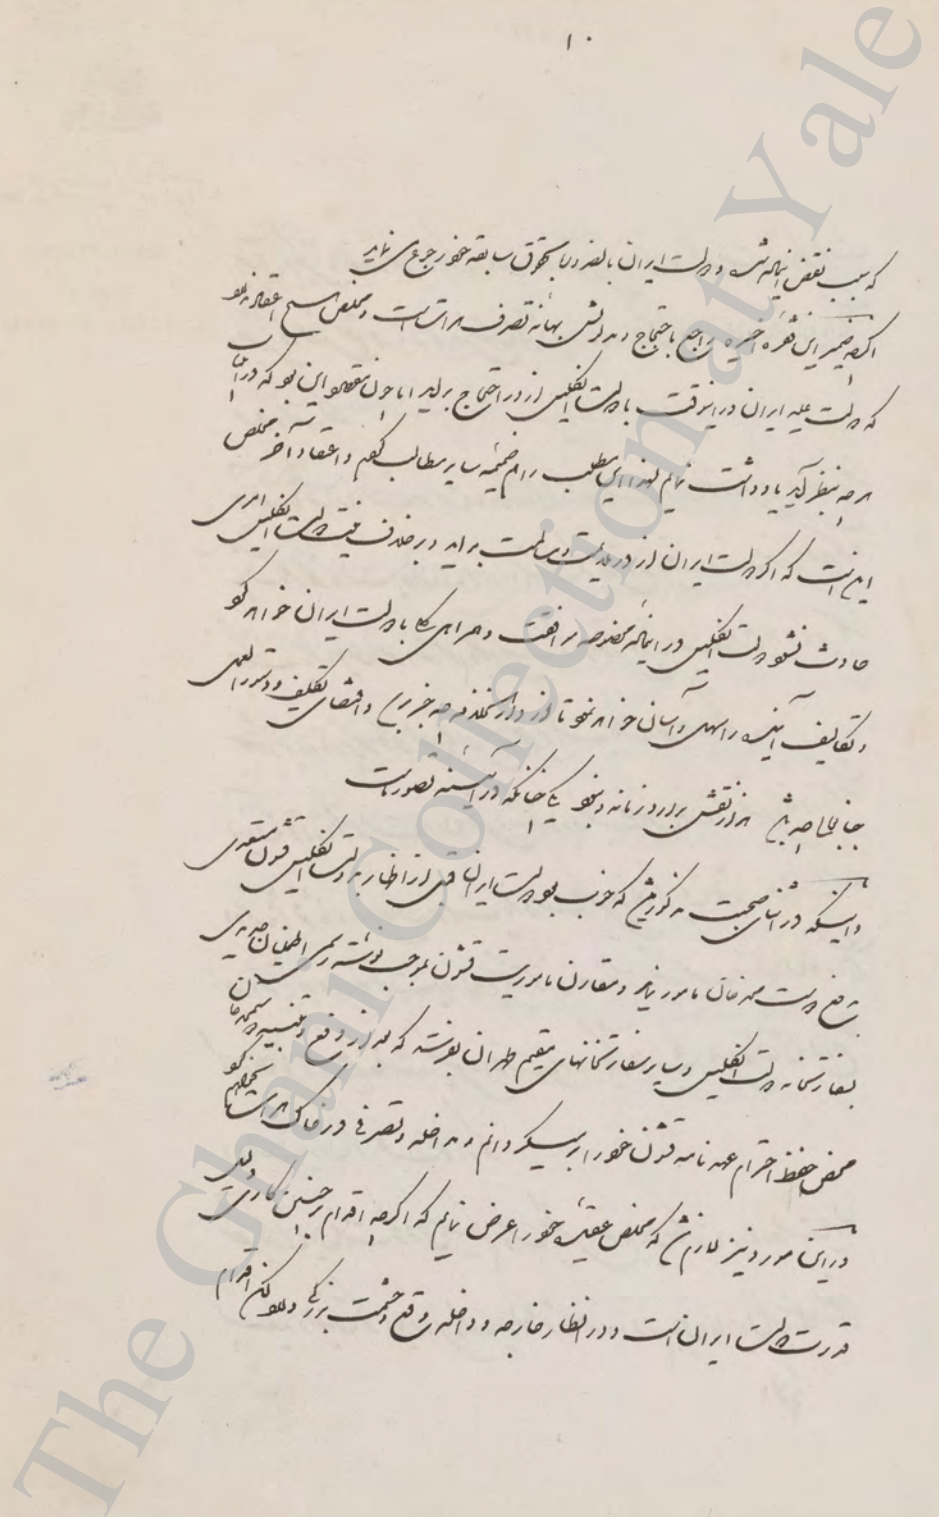 ۱۰
که سبب نقض این مسئله شده دولت ایران بالضروره بحقوق سابقه خود رجوع می نماید
اگرچه ضمیر این فقره اخیره راجع باحتجاج و مدلولش بهانه تصرف هرات است و مخلص هیچ اعتقاد ندارد
که دولت علیه ایران در اینوقت با دولت انگلیس از در احتجاج برآید اما چون مقصود این بود که در آن باب
هرچه بنظر آید یادداشت نمایم لهذا این مطلب را هم ضمیمه سایر مطالب کردم و اعتقاد آخر مخلص
این است که اگر دولت ایران از در و مسالمت برآید و بر خلاف میل دولت انگلیس امری
حادث نشود دولت انگلیس در این مسئله مخصوصه موافقت و همراهی با دولت ایران خواهد کرد
و تکالیف آینده را سهل و آسان خواهد نمود تا از چه خبر برسد و اقتضای تکلیف و دستورالعمل
جنابعالی چه باشد هزار نقش برآرد زمانه و نبود یکی چنانکه در آئینه تصور ماست
و اینکه در اثنای صحبت مذکور شد که خوب بود دولت ایران قبل از اظهار بدولت انگلیس قشون مستعدی
بدفع دوست محمد خان مامور نماید و مقارن ماموریت قشون بموجب نوشته رسمی اطمینان
بسفارتخانه دولت انگلیس و سایر سفارتخانهای مقیم طهران بنویسند که بعد از دفع و تنبیه
محض حفظ احترام عهدنامه قشون خود را بر میگردانم و مداخله و تصرفی در خاک هرات نخواهم کرد
در این مورد نیز لازم شد که مخلص عقیده خود را عرض نمایم که اگرچه اقدام بر چنین کاری دلیل
قدرت دولت ایران است و در انظار خارجه و داخله وقع و حشمت بزرگی دارد لکن اقدام
The Ghani Collection at Yale